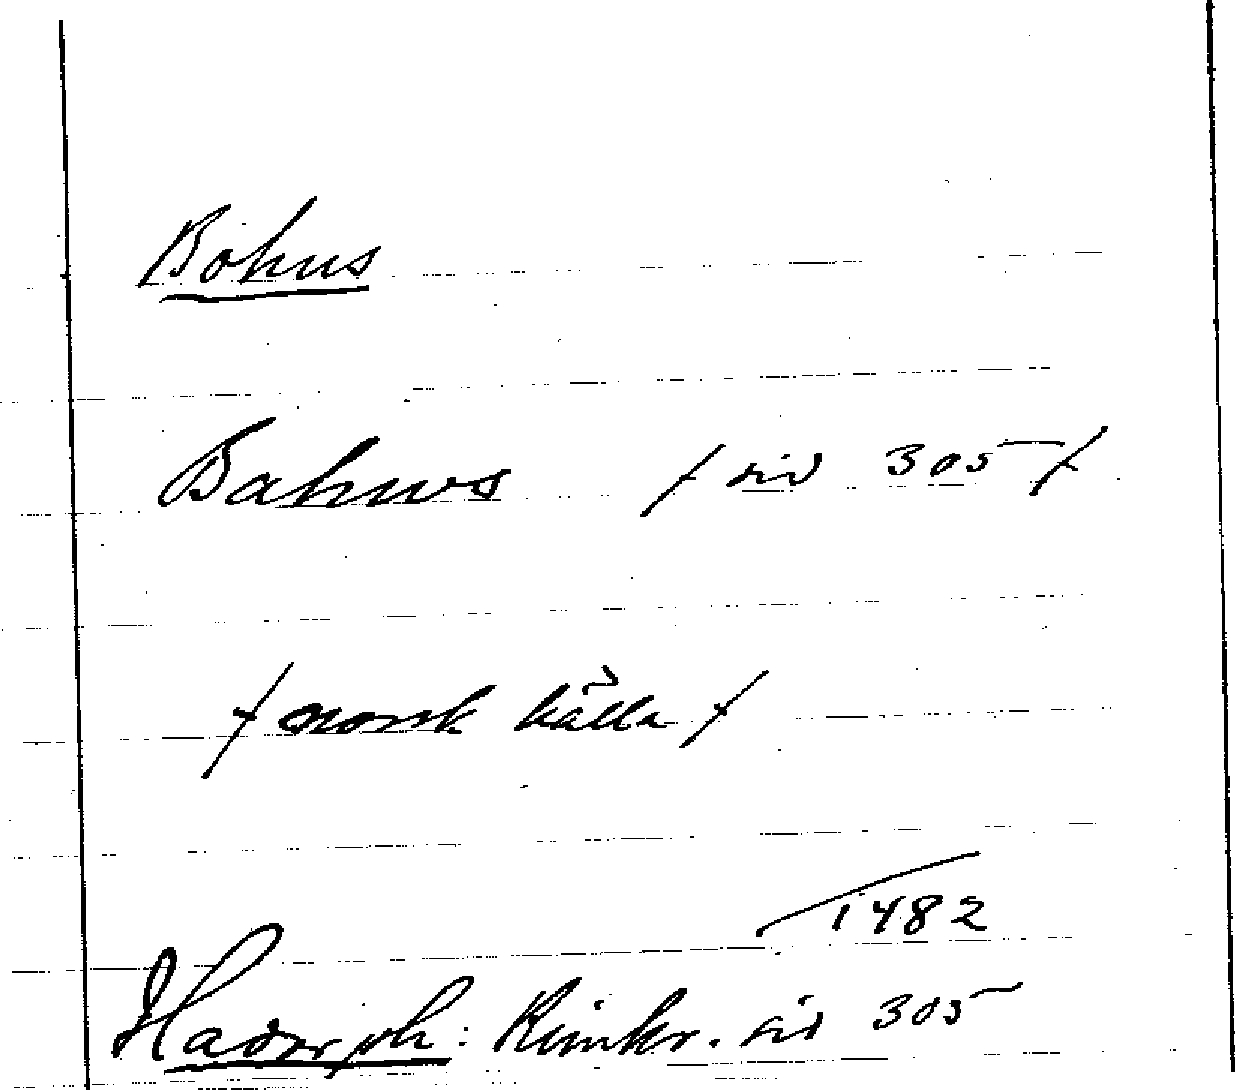 Bohus
Bahws / sid 305 /
/ norsk källa /
1482
Hadorph: Rimkr. sid 305